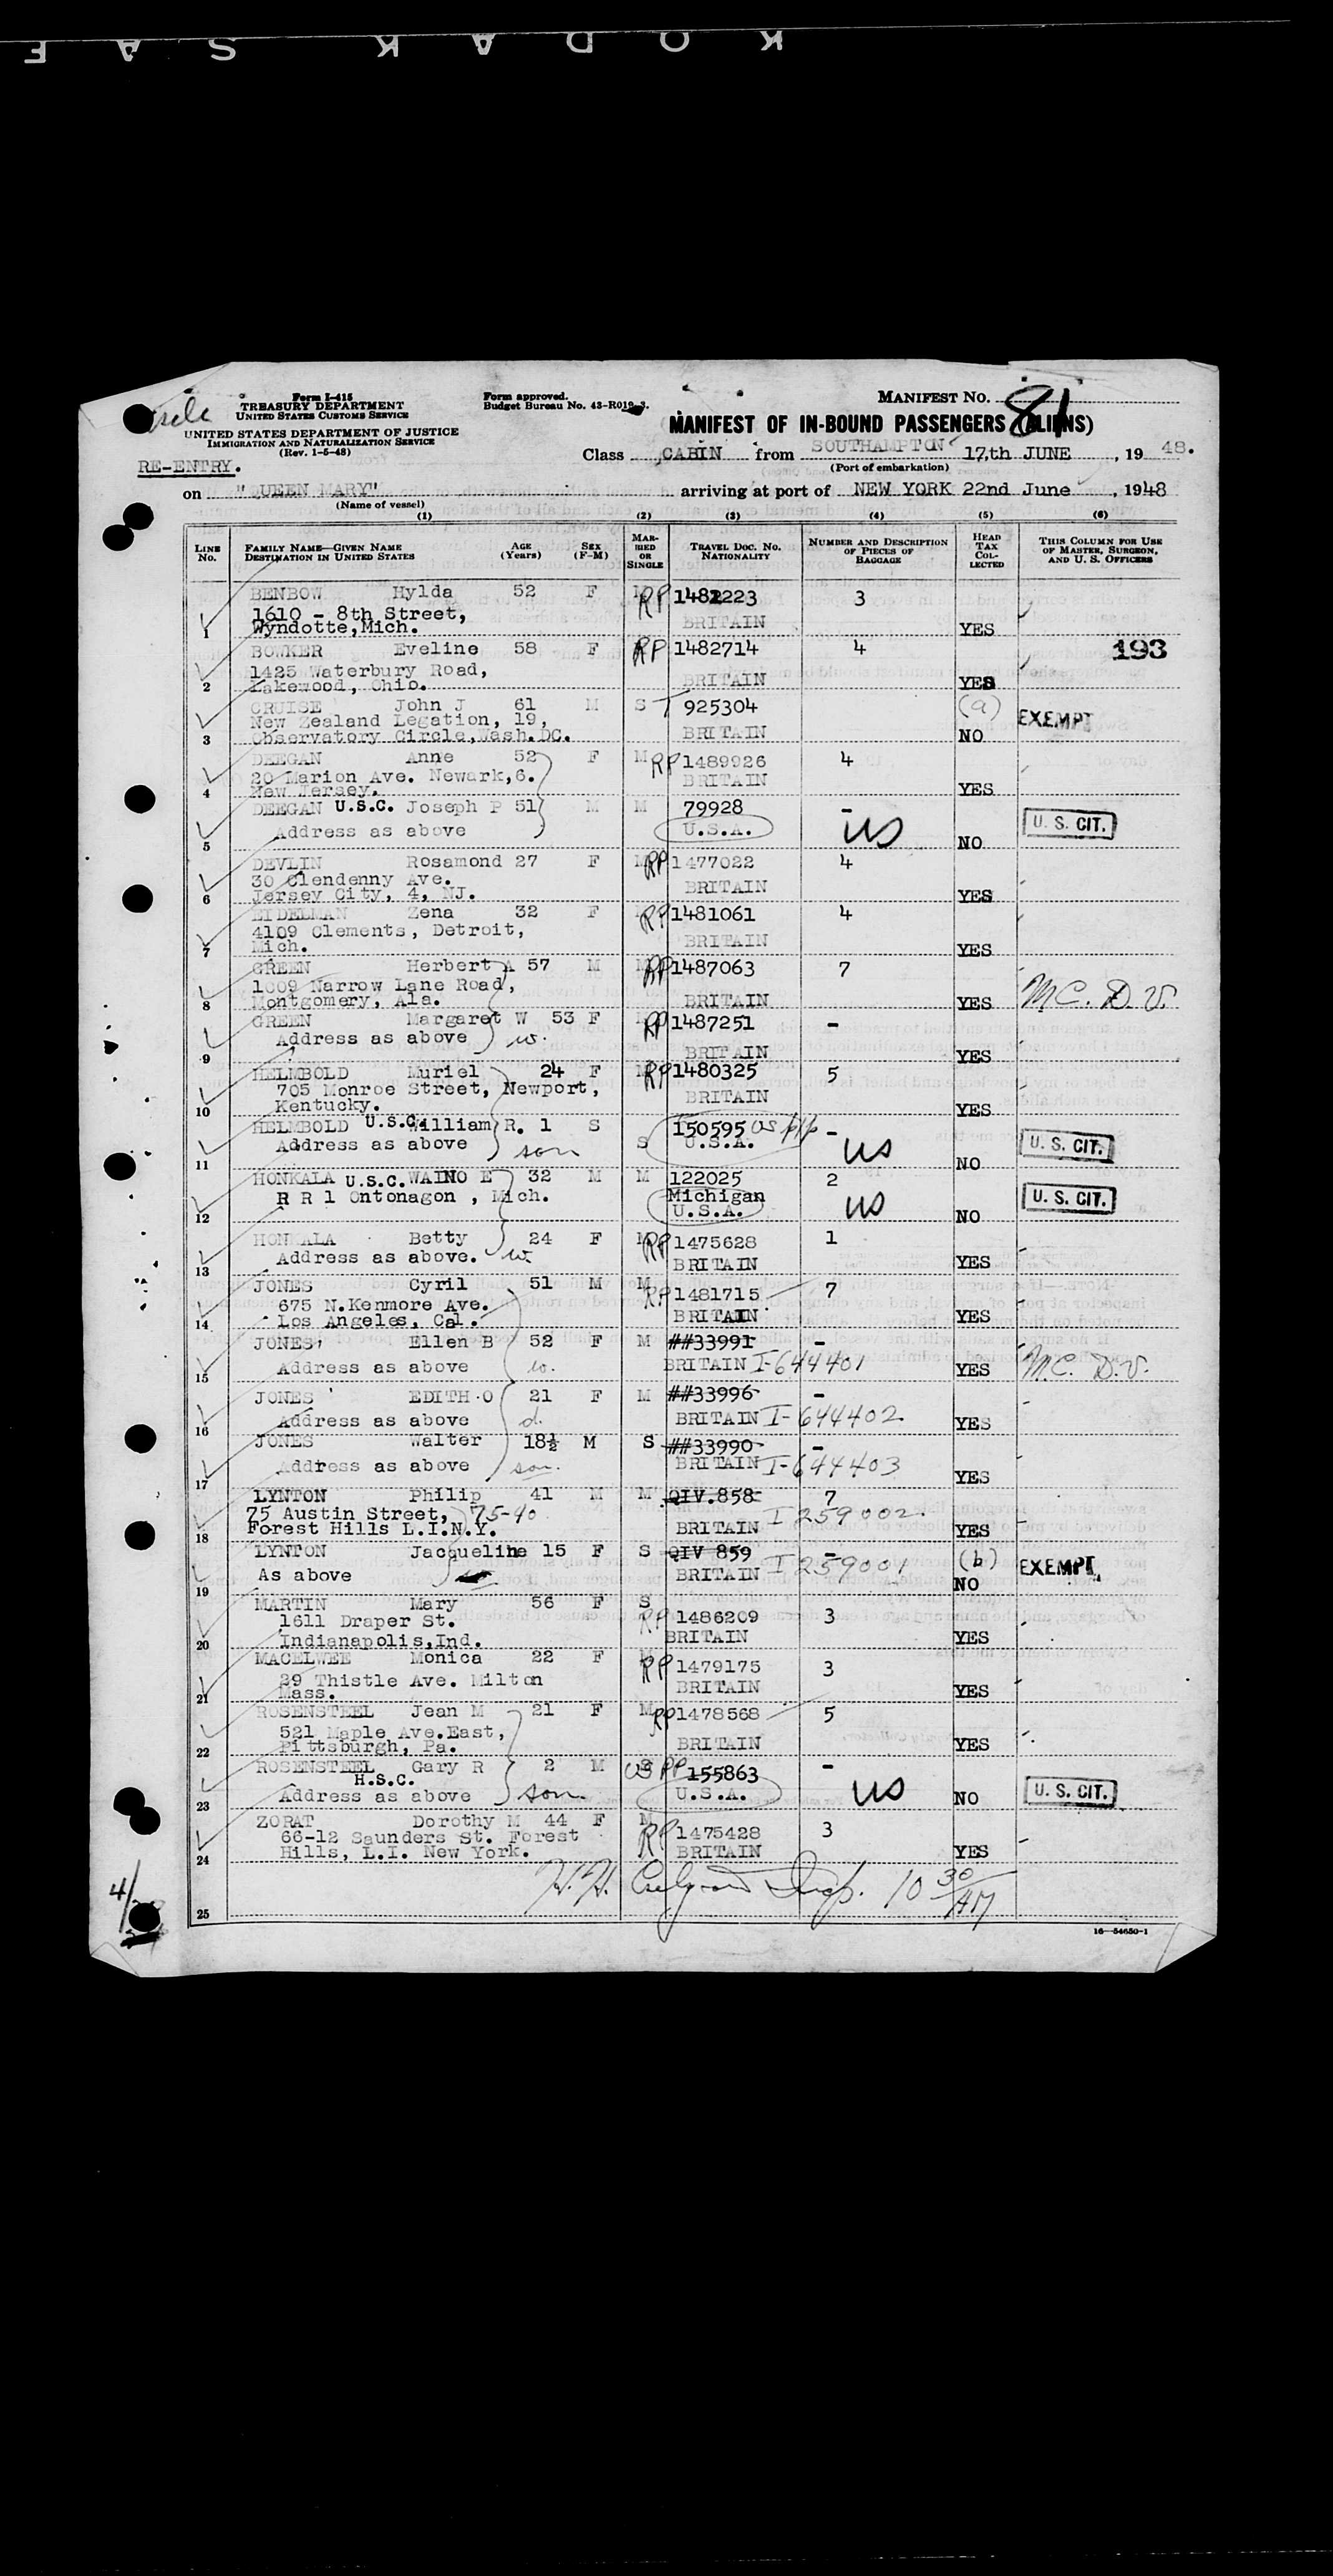 KODAK SAFE
Form I-415
TREASURY DEPARTMENT
UNITED STATES CUSTOMS SERVICE
UNITED STATES DEPARTMENT OF JUSTICE
IMMIGRATION AND NATURALIZATION SERVICE
(Rev. 1-5-48)
Form approved.
Budget Bureau No. 43-R019.3.
MANIFEST NO. 81
MANIFEST OF IN-BOUND PASSENGERS (ALIENS)
RE-ENTRY.
Class CABIN from SOUTHAMPTON 17th JUNE, 19 48.
(Port of embarkation)
on "QUEEN MARY" arriving at port of NEW YORK 22nd June, 1948
(Name of vessel)
(1) (2) (3) (4) (5) (6)
LINE No. FAMILY NAME—GIVEN NAME DESTINATION IN UNITED STATES AGE (Years) SEX (F-M) MARRIED OR SINGLE TRAVEL DOC. NO. NATIONALITY NUMBER AND DESCRIPTION OF PIECES OF BAGGAGE HEAD TAX COLLECTED THIS COLUMN FOR USE OF MASTER, SURGEON, AND U. S. OFFICERS
BENBOW Hylda 52 F RP 1482223 3
1610 - 8th Street, BRITAIN
1 Wyndotte,Mich. YES
BOWKER Eveline 58 F RP 1482714 4 193
1425 Waterbury Road,
2 Lakewood, Ohio. BRITAIN YES
CRUISE John J 61 M S T 925304 (a)
New Zealand Legation, 19, EXEMPT
3 Observatory Circle,Wash.DC. BRITAIN NO
DEEGAN Anne 52 F M RP 1489926 4
20 Marion Ave. Newark,6. BRITAIN
4 New Jersey. YES
DEEGAN U.S.C. Joseph P 51 M M 79928 -
5 Address as above U.S.A. US NO U. S. CIT.
DEVLIN Rosamond 27 F M RP 1477022 4
30 Clendenny Ave. BRITAIN
6 Jersey City, 4, NJ. YES
EIDELMAN Zena 32 F RP 1481061 4
4109 Clements, Detroit, BRITAIN
7 Mich. YES
GREEN Herbert A 57 M M RP 1487063 7
1009 Narrow Lane Road,
8 Montgomery, Ala. BRITAIN YES M.C. D.V.
GREEN Margaret W 53 F RP 1487251 -
9 Address as above w. BRITAIN YES
HELMBOLD Muriel 24 F M RP 1480325 5
705 Monroe Street, Newport, BRITAIN
10 Kentucky. YES
HELMBOLD U.S.C. William R. 1 S 150595 US pp -
11 Address as above son S U.S.A. US NO U. S. CIT.
HONKALA U.S.C. WAINO E 32 M M 122025 2
R R 1 Ontonagon , Mich. Michigan
12 U.S.A. US NO U. S. CIT.
HONKALA Betty 24 F M RP 1475628 1
13 Address as above. w BRITAIN YES
JONES Cyril 51 M M RP 1481715 7
675 N.Kenmore Ave.
14 Los Angeles, Cal. BRITAIN YES
JONES Ellen B 52 F M ##33991 -
15 Address as above w. BRITAIN I-644401 YES M.C. D.V.
JONES EDITH O 21 F M ##33996 -
16 Address as above d. BRITAIN I-644402 YES
JONES Walter 18½ M S ##33990 -
17 Address as above son. BRITAIN I-644403 YES
LYNTON Philip 41 M M QIV.858 7
75 Austin Street, 75-40 I 259002
18 Forest Hills L.I.N.Y. BRITAIN YES
LYNTON Jacqueline 15 F S QIV 859 - (b)
19 As above BRITAIN I 259001 NO EXEMPT
MARTIN Mary 56 F S RP 1486209 3
1611 Draper St.
20 Indianapolis,Ind. BRITAIN YES
MACELWEE Monica 22 F RP 1479175 3
29 Thistle Ave. Milton BRITAIN
21 Mass. YES
ROSENSTEEL Jean M 21 F M RP 1478568 5
521 Maple Ave.East,
22 Pittsburgh, Pa. BRITAIN YES
ROSENSTEEL Gary R 2 M S US PP 155863 -
H.S.C.
23 Address as above son U.S.A. US NO U. S. CIT.
ZORAT Dorothy M 44 F M RP 1475428 3
66-12 Saunders St. Forest
24 Hills, L.I. New York. BRITAIN YES
H.H. Insp. 10 30 AM
25
16—54650-1
4/